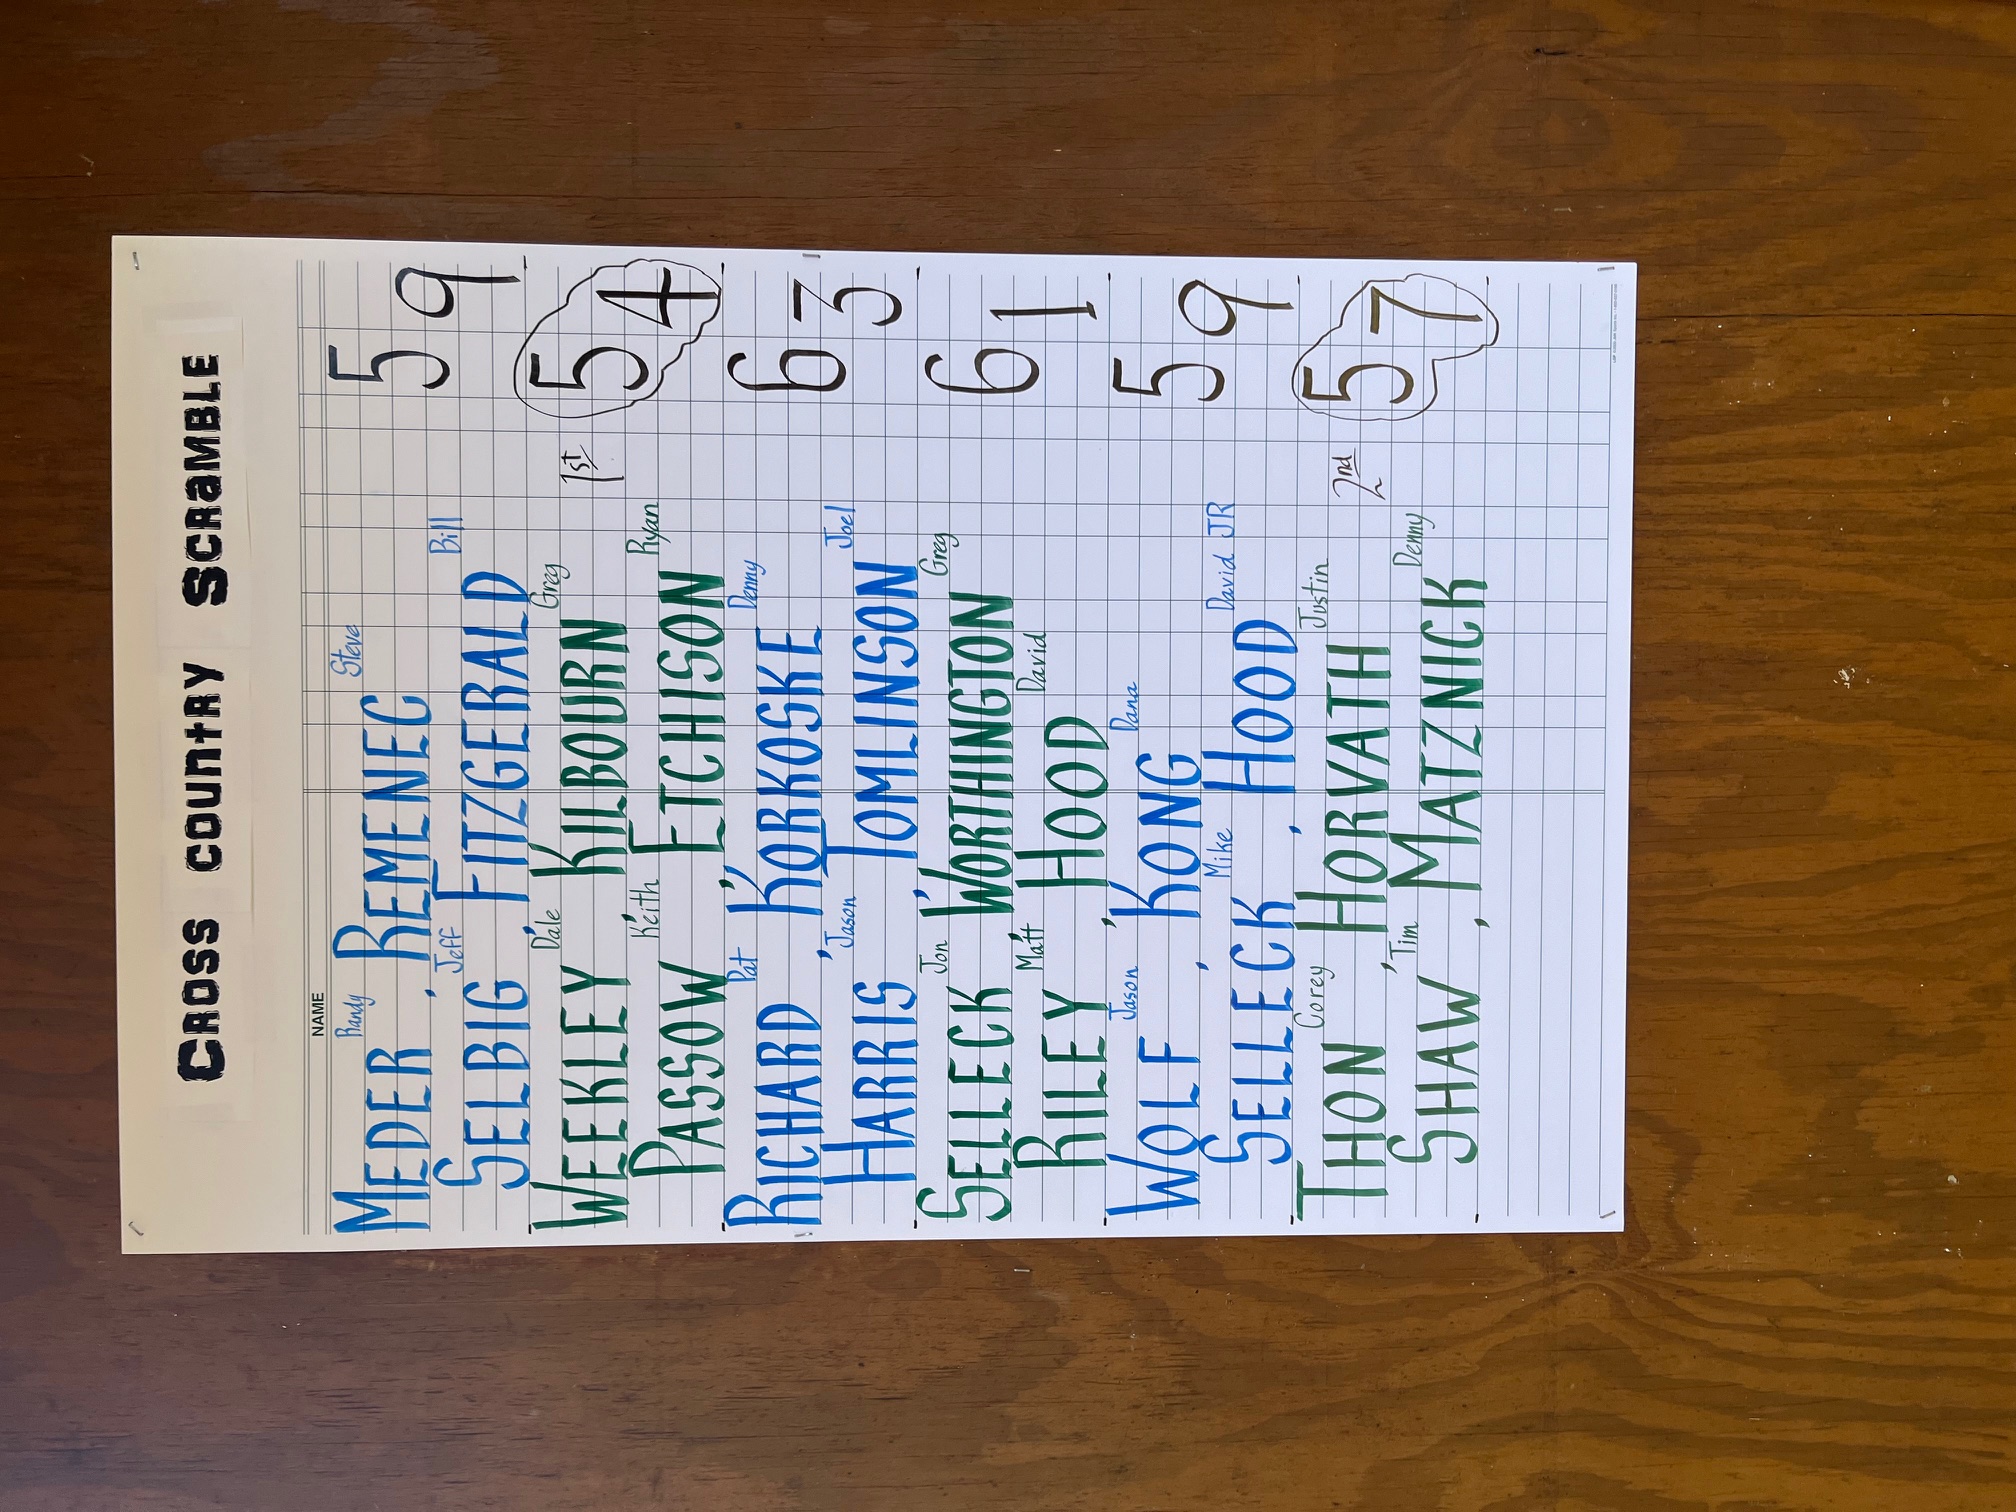 Cross Country Scramble
NAME
Randy Steve
MEDER, REMENEC 59
Jeff Bill
SELBIG FITZGERALD
Dale Greg
WEEKLEY, KILBOURN 1st 54
Keith Ryan
PASSOW, ETCHISON
Pat Denny
RICHARD, KORKOSKE 63
Jason Joel
HARRIS, TOMLINSON
Jon Greg
SELLECK, WORTHINGTON 61
Matt David
RILEY, HOOD
Jason Dana
WOLF, KONG 59
Mike David JR
SELLECK, HOOD
Corey Justin
THON, HORVATH 2nd 57
Tim Denny
SHAW, MATZNICK